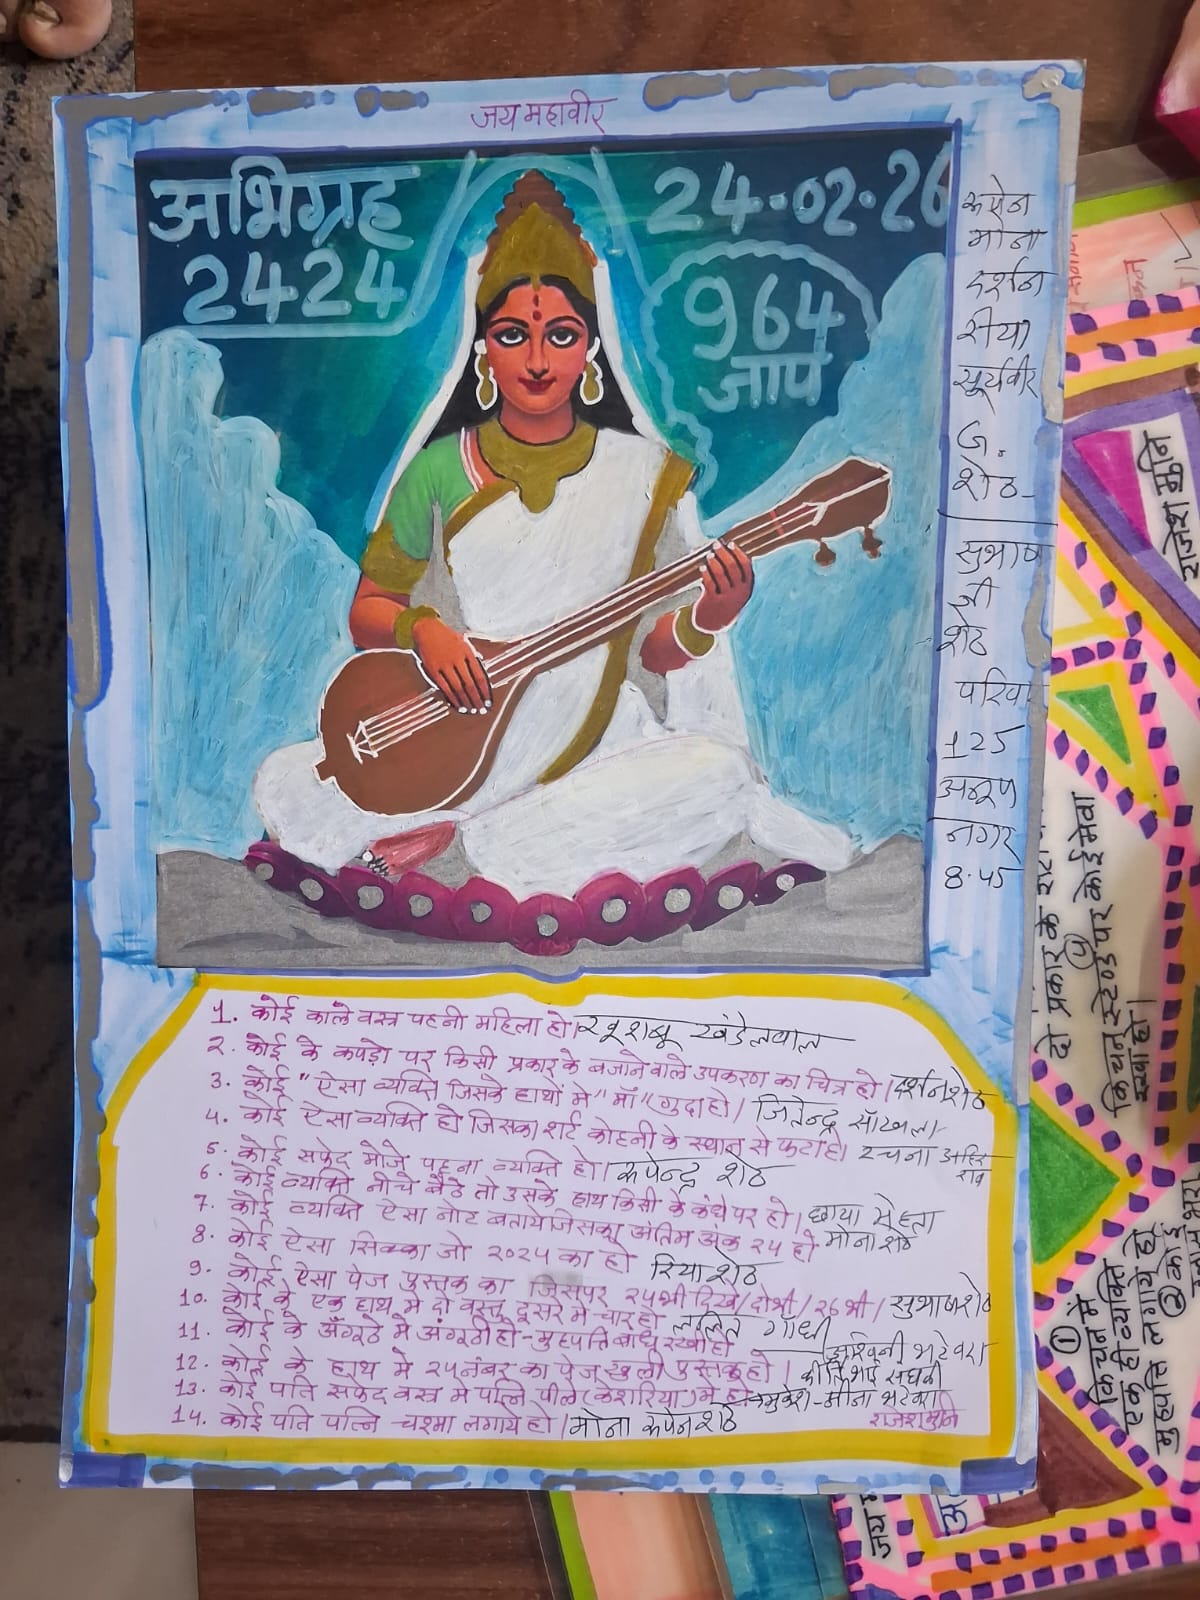 जय महावीर
अभिग्रह
2424
24.02.26
964
जाप
कपेन
मोना
दर्शन
रीया
सूर्यवीर
ज.
शेठ
सुभाष
जी
शेठ
परिवार
125
अनूप
नगर
8.45
1. कोई काले वस्त्र पहनी महिला हो। खुशबू खंडेलवाल
2. कोई के कपड़ो पर किसी प्रकार के बजाने वाले उपकरण का चित्र हो। दर्शन शेठ
3. कोई "ऐसा व्यक्ति जिसके हाथों मे "माँ" गुदा हो। जितेन्द्र साँखला
4. कोई ऐसा व्यक्ति हो जिसका शर्ट कोहनी के स्थान से फटा हो। रचना
5. कोई सफेद मोजे पहना व्यक्ति हो। कपेन्द्र शेठ
6. कोई व्यक्ति नीचे बैठे तो उसके हाथ किसी के कंधे पर हो। छाया मेहता
7. कोई व्यक्ति ऐसा नोट बताये जिसका अंतिम अंक २५ हो मोना शेठ
8. कोई ऐसा सिक्का जो २०२५ का हो रिया शेठ
9. कोई ऐसा पेज पुस्तक का जिसपर २५ भी दिखे/दो भी/२६ भी। सुभाष शेठ
10. कोई के एक हाथ मे दो वस्तु दूसरे मे चार हो ललित गाँधी
11. कोई के अँगूठे मे अंगूठी हो - मुहपति बांधे रखी हो अश्विनी भटेवरा
12. कोई के हाथ मे २५ नंबर का पेज खुली पुस्तक हो। कीर्तिभाई संघवी
13. कोई पति सफेद वस्त्र मे पत्नि पीले (केशरिया) मे हो मुकेश-मीना भटेवरा
14. कोई पति पत्नि चश्मा लगाये हो। मोना कपेन शेठ
राजेश मुनि
राजेश मुनि
दो प्रकार के
५
किचन स्टेण्ड पर कोई मेवा
रखा हो।
①
किचन में
एक ही व्यक्ति
मुहपत्ति लगाये हो
② कोई
जय